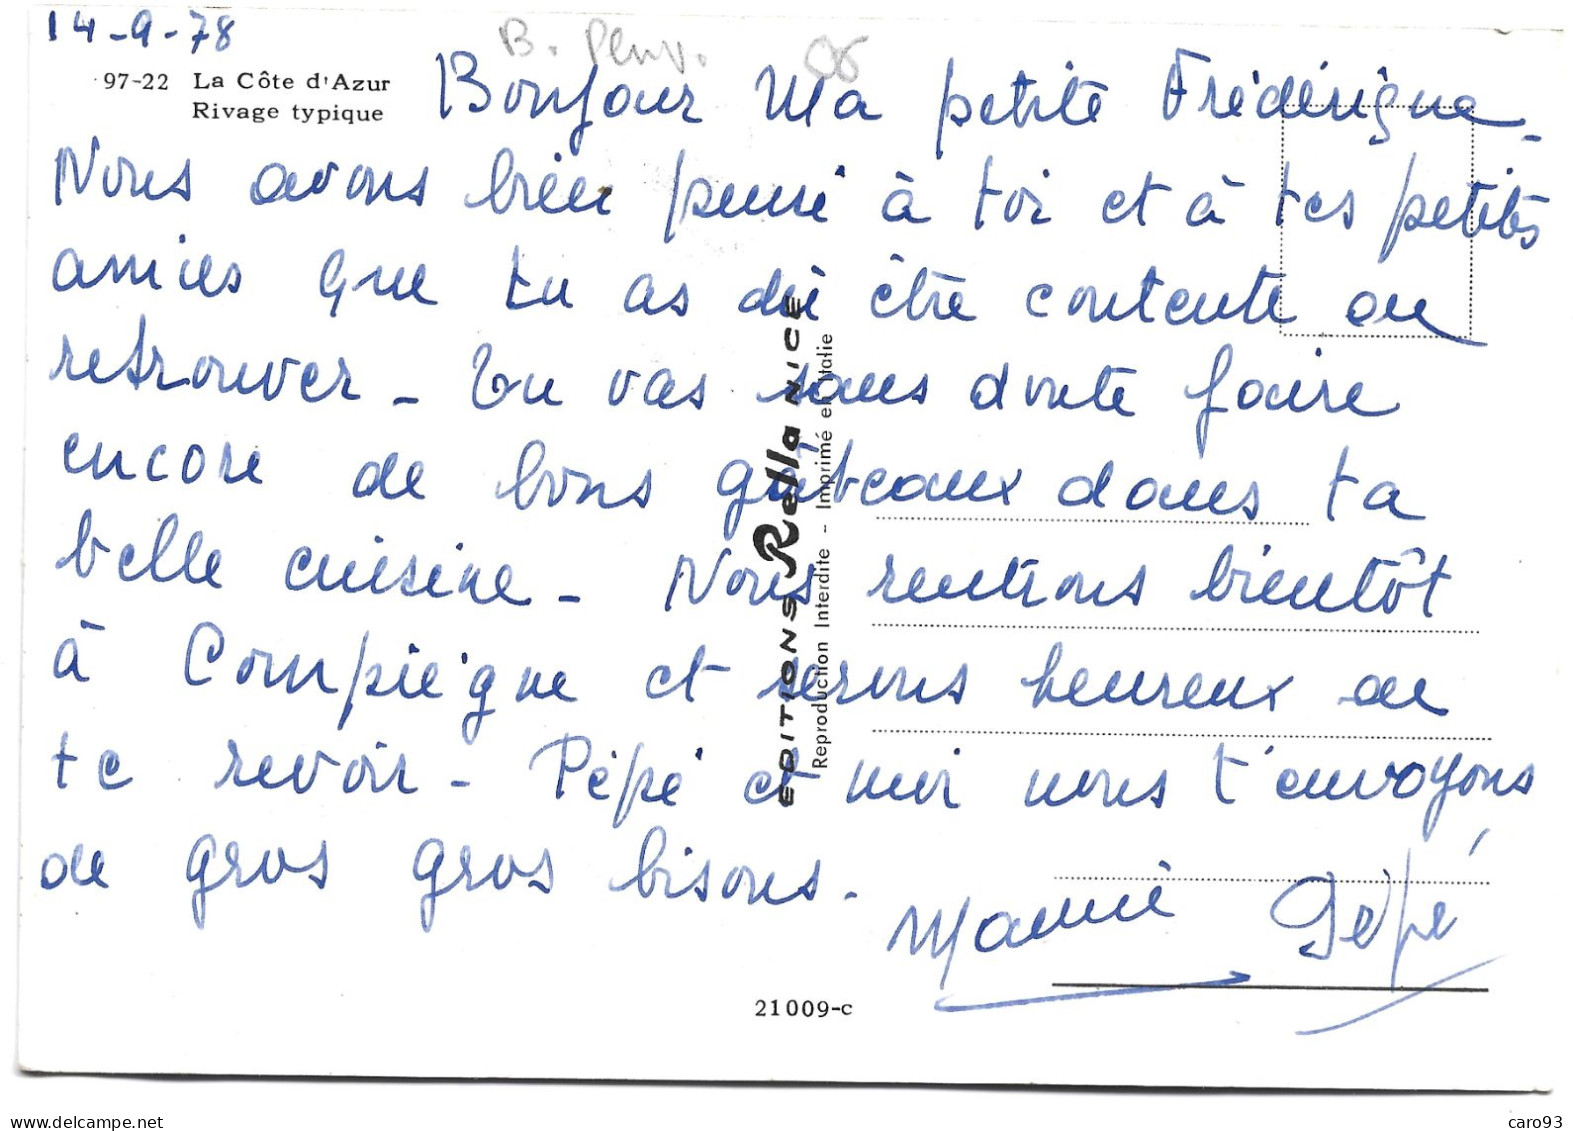 14-9-78
B. Penv. 06
97-22 La Côte d'Azur
Rivage typique
Bonjour Ma petite Frédérique -
Nous avons bien pensé à toi et à tes petites
amies que tu as dû être contente de
retrouver - Tu vas sans doute faire
encore de bons gâteaux dans ta
belle cuisine - Nous rentrons bientôt
à Compiègne et serons heureux de
te revoir - Pépé et moi nous t'envoyons
de gros gros bisous.
Mamie Pépé
EDITIONS Rella NICE
Reproduction Interdite - Imprimé en Italie
21009-c
www.delcampe.net
caro93